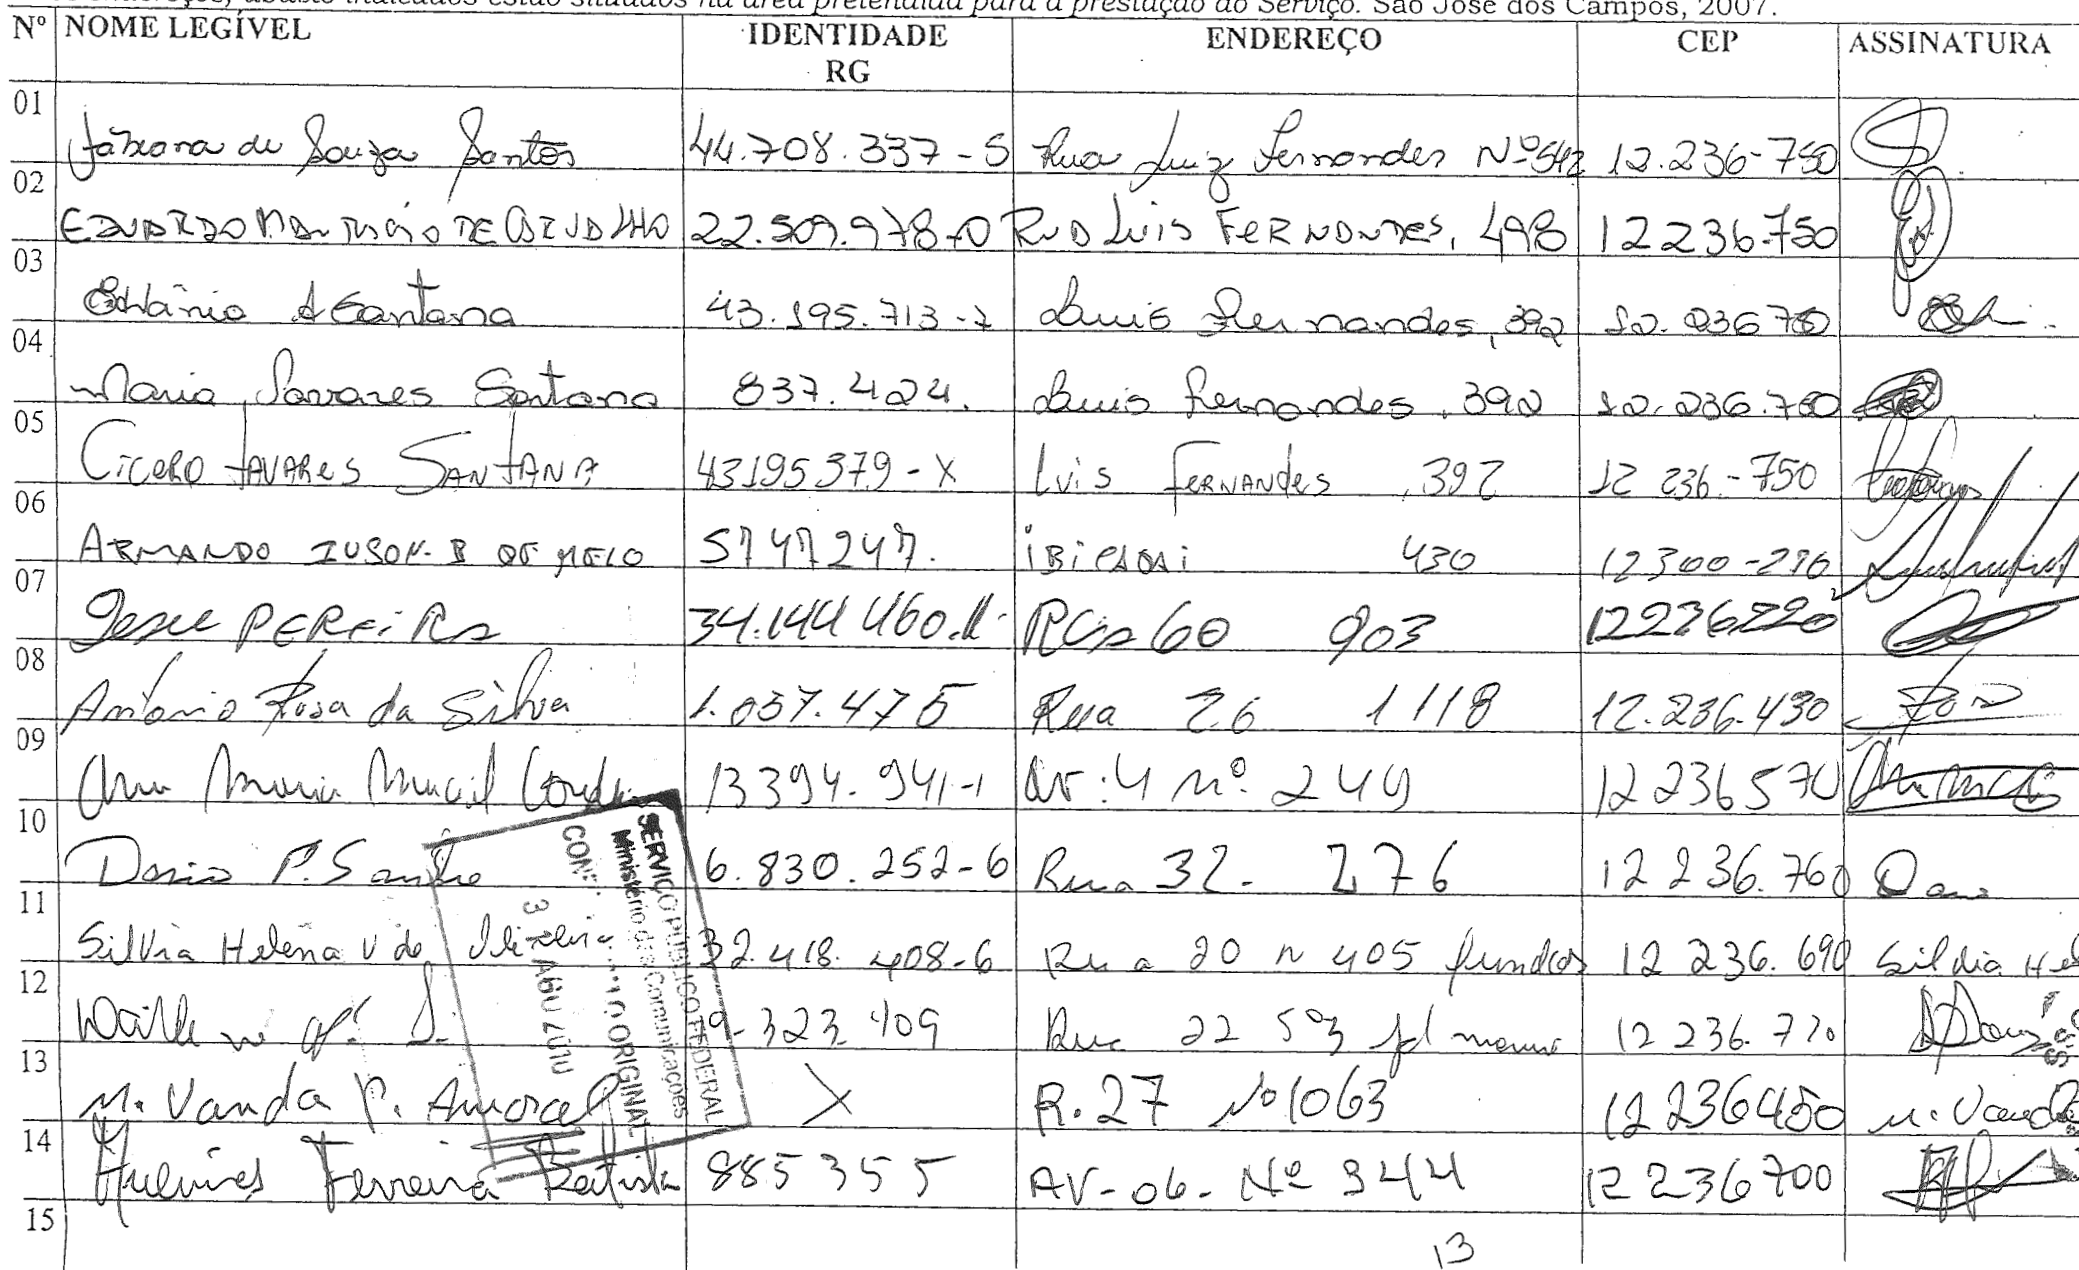 endereços, abaixo indicados estão situados na área pretendida para a prestação do Serviço. São José dos Campos, 2007.
Nº NOME LEGÍVEL IDENTIDADE RG ENDEREÇO CEP ASSINATURA
01 de Souza Santos 44.708.337-5 Rua Luiz Fernandes Nº 542 12.236-750
02 EDUARDO DE 22.509.978-0 Luis FERNANDES, 498 12236-750
03 Santana 43.195.713-7 Luis Fernandes, 392 12.236750
04 Maria Tavares Santana 837.424. Luis Fernandes, 392 12.236.750
05 CICERO TAVARES SANTANA 43195379-X Luis FERNANDES, 392 12 236-750
06 ARMANDO DE MELO 5747247. 430 12300-
07 PEREIRA 34.144 460. 60 903 12236220
08 Antonio Rosa da Silva 1.037.475 Rua 26 1118 12.236.430
09 Maria 13394.941-1 av:4 nº 249 12236570
10 P. 6.830.252-6 Rua 32- 276 12 236.760
11 Silvia Helena V de Oliveira 32.418.408-6 Rua 20 n 405 fundos 12 236.690 Silvia Hel
12 323 109 Rua 22 503 12 236.770
13 M. Vanda P. Amaral X R. 27 Nº 1063 12236450 M. Vanda
14 Ferreira Batista 885355 AV-06- Nº 344 12236700
15
SERVIÇO PÚBLICO FEDERAL
Ministério das Comunicações
ORIGINAL
AGO 2010
13